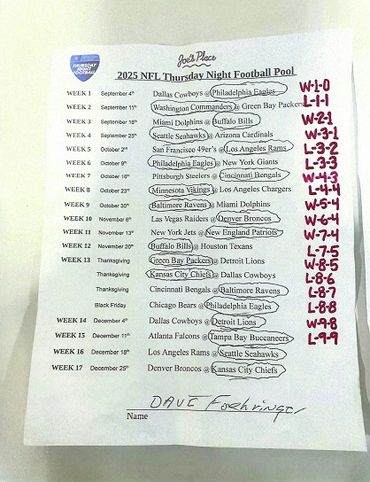 THURSDAY NIGHT FOOTBALL
Joe's Place
2025 NFL Thursday Night Football Pool
WEEK 1 September 4th Dallas Cowboys @ Philadelphia Eagles W-1-0
WEEK 2 September 11th Washington Commanders @ Green Bay Packers L-1-1
WEEK 3 September 18th Miami Dolphins @ Buffalo Bills W-2-1
WEEK 4 September 25th Seattle Seahawks @ Arizona Cardinals W-3-1
WEEK 5 October 2nd San Francisco 49er's @ Los Angeles Rams L-3-2
WEEK 6 October 9th Philadelphia Eagles @ New York Giants L-3-3
WEEK 7 October 16th Pittsburgh Steelers @ Cincinnati Bengals W-4-3
WEEK 8 October 23rd Minnesota Vikings @ Los Angeles Chargers L-4-4
WEEK 9 October 30th Baltimore Ravens @ Miami Dolphins W-5-4
WEEK 10 November 6th Las Vegas Raiders @ Denver Broncos W-6-4
WEEK 11 November 13th New York Jets @ New England Patriots W-7-4
WEEK 12 November 20th Buffalo Bills @ Houston Texans L-7-5
WEEK 13 Thanksgiving Green Bay Packers @ Detroit Lions W-8-5
Thanksgiving Kansas City Chiefs @ Dallas Cowboys L-8-6
Thanksgiving Cincinnati Bengals @ Baltimore Ravens L-8-7
Black Friday Chicago Bears @ Philadelphia Eagles L-8-8
WEEK 14 December 4th Dallas Cowboys @ Detroit Lions W-9-8
WEEK 15 December 11th Atlanta Falcons @ Tampa Bay Buccaneers L-9-9
WEEK 16 December 18th Los Angeles Rams @ Seattle Seahawks
WEEK 17 December 25th Denver Broncos @ Kansas City Chiefs
DAVE Foehringer
Name